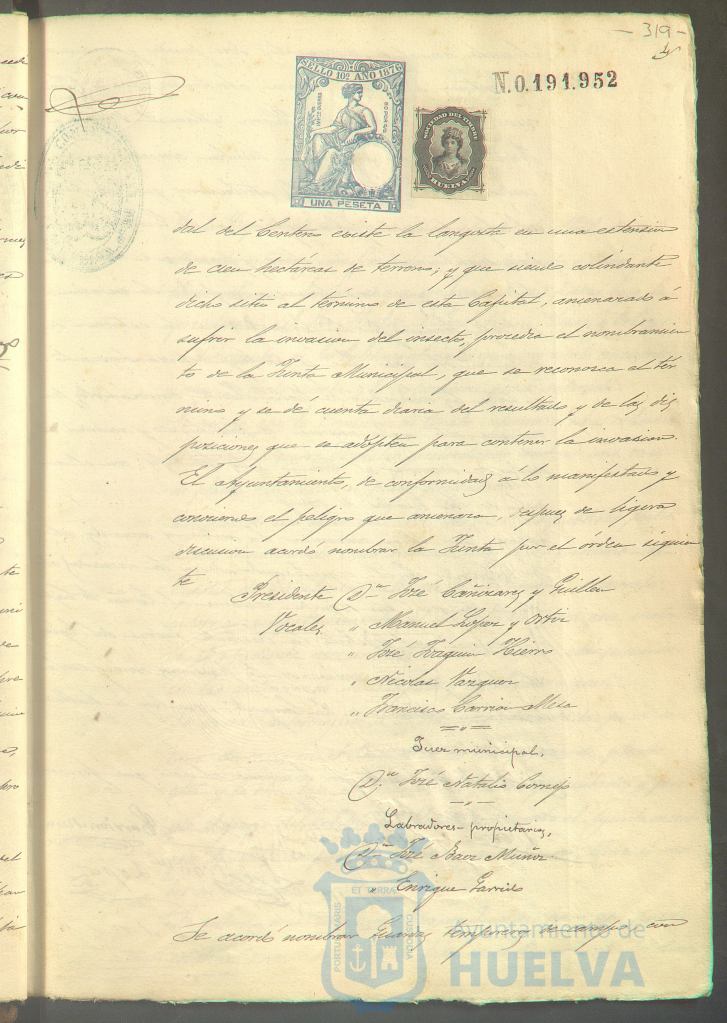 - 319 -
SELLO 10º AÑO 1876
UNA PESETA
SOCIEDAD DEL TIMBRE
HUELVA
N.0.191.952
dal del Centeno existe la langosta en una estension
de cien hectáreas de terreno; y que siendo colindante
dicho sitio al término de esta Capital, amenazado á
sufrir la invasion del insecto, procedia el nombramien
to de la Junta Municipal, que se reconosca el tér
mino y se dé cuenta diaria del resultado y de las dis
posiciones que se adopten para contener la invasion.
El Ayuntamiento, de conformidad á lo manifestado y
conociendo el peligro que amenaza, despues de ligera
discusion acordó nombrar la Junta por el órden siguien
te
Presidente Dn José Cañizares y Guillen
Vocales " Manuel López y Ortiz
" José Joaquin Hierro
" Nicolas Vazquez
" Francisco Carrion Mesa
Juez municipal.
Dn José Natalio Cornejo
Labradores-propietarios.
Dn José Baez Muñoz
Enrique Garrido
Se acordó nombrar Guardas temporeros de campo con
PORTUS MARIS ET TERRÆ CUSTODIA
Ayuntamiento de
HUELVA